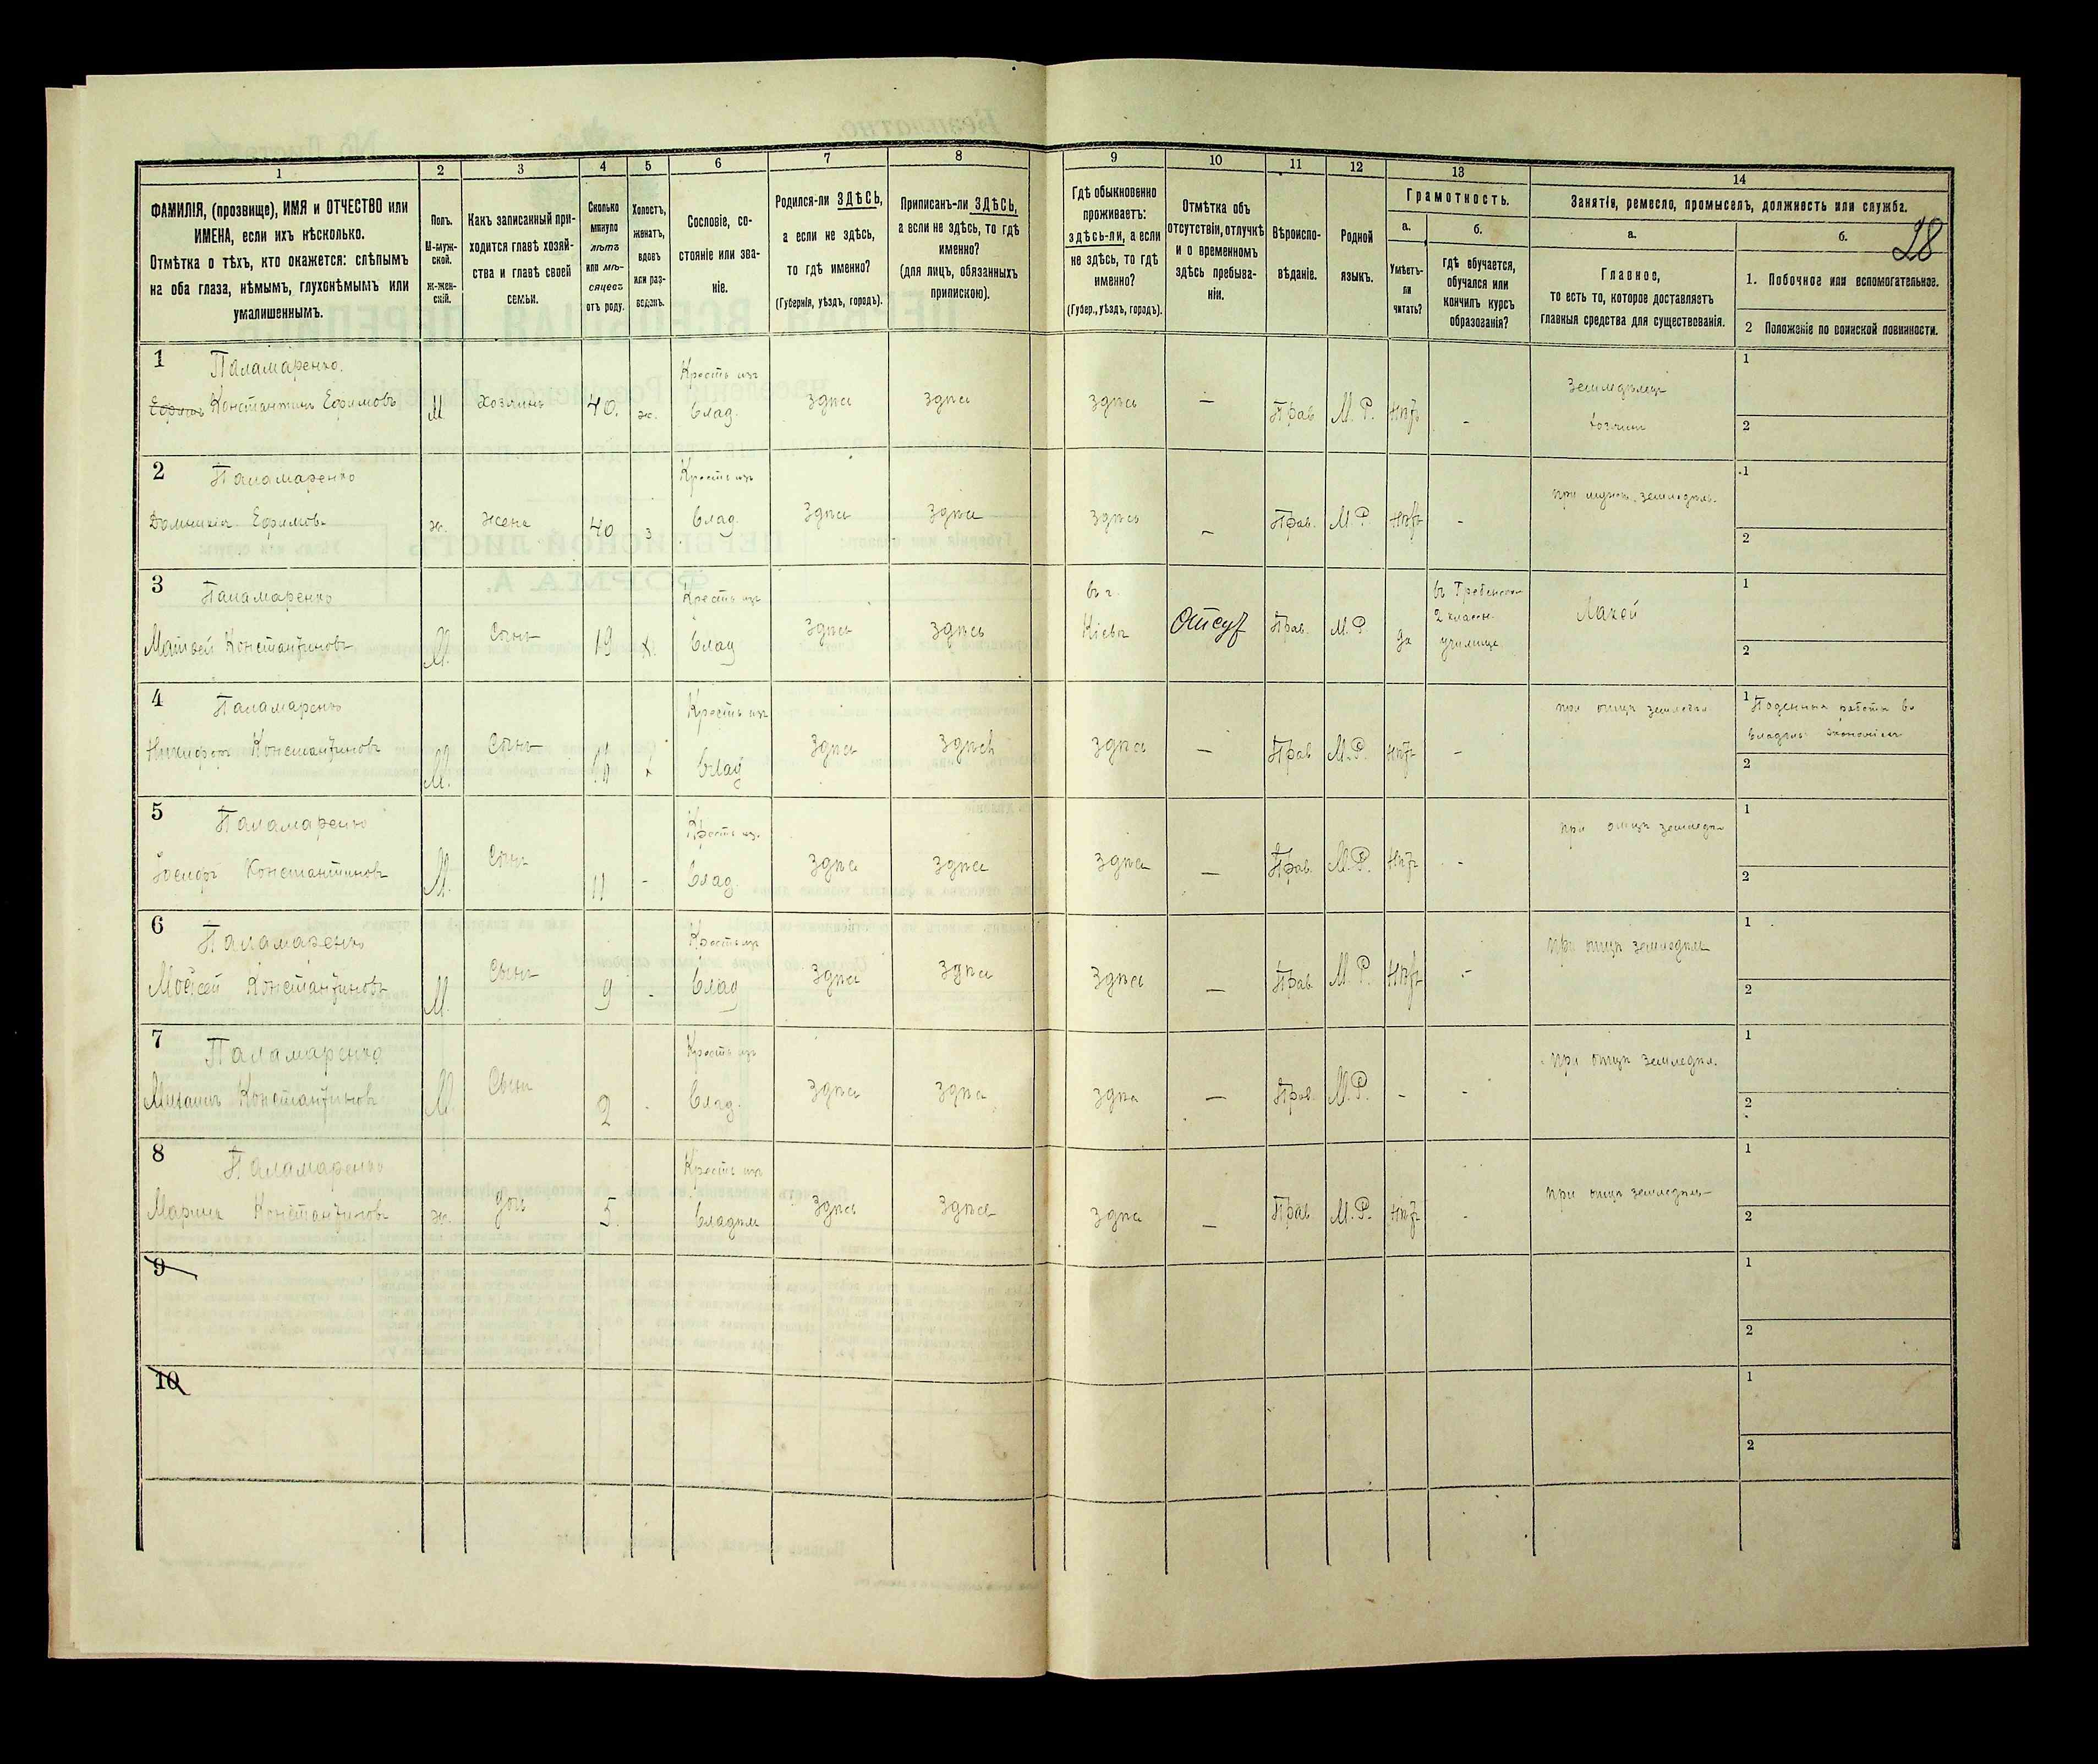 28
1 2 3 4 5 6 7 8 9 10 11 12 13 14
ФАМИЛІЯ, (прозвище), ИМЯ и ОТЧЕСТВО или
ИМЕНА, если ихъ нѣсколько.
Отмѣтка о тѣхъ, кто окажется: слѣпымъ
на оба глаза, нѣмымъ, глухонѣмымъ или
умалишеннымъ.
Полъ.
М-муж-
ской.
Ж-жен-
скій.
Какъ записанный при-
ходится главѣ хозяй-
ства и главѣ своей
семьи.
Сколько
минуло
лѣтъ
или мѣ-
сяцевъ
отъ роду.
Холостъ,
женатъ,
вдовъ
или раз-
веденъ.
Сословіе, со-
стояніе или зва-
ніе.
Родился-ли ЗДѢСЬ,
а если не здѣсь,
то гдѣ именно?
(Губернія, уѣздъ, городъ).
Приписанъ-ли ЗДѢСЬ,
а если не здѣсь, то гдѣ
именно?
(для лицъ, обязанныхъ
припискою).
Гдѣ обыкновенно
проживаетъ:
здѣсь-ли, а если
не здѣсь, то гдѣ
именно?
(Губер., уѣздъ, городъ).
Отмѣтка объ
отсутствіи, отлучкѣ
и о временномъ
здѣсь пребыва-
ніи.
Вѣроиспо-
вѣданіе.
Родной
языкъ.
Грамотность.
а.
Умѣетъ-
ли
читать?
б.
гдѣ обучается,
обучался или
кончилъ курсъ
образованія?
Занятіе, ремесло, промыселъ, должность или служба.
а.
Главное,
то есть то, которое доставляетъ
главныя средства для существованія.
б.
1. Побочное или вспомогательное.
2 Положеніе по воинской повинности.
1 Паламаренко. Крест. изъ Земледѣлец 1
Ефимъ Константинъ Ефимовъ М Хозяинъ 40. ж. Влад. Здѣсь здѣсь здѣсь — Прав М. Р. нѣтъ - хозяин 2
2 Паламаренко Крест. изъ при мужѣ земледѣль. 1
Ефимов. ж. жена 40 з Влад. Здѣсь здѣсь здѣсь — Прав. М. Р. нѣтъ - 2
3 Паламаренко Крест. изъ въ г. въ 1
Матвей Константиновъ М. Сынъ 19 х. Влад Здѣсь здѣсь Кіевѣ Отсут Прав. М. Р да 2 классн. Лакей
училище 2
4 Паламаренко Крест. изъ при отцѣ 1 Поденная работа въ
Никифоръ Константиновъ М. Сынъ х Влад Здѣсь здѣсь здѣсь — Прав М. Р. нѣтъ - экономіи 2
5 Паламаренко Крест. изъ при отцѣ 1
Іосифъ Константиновъ М. Сынъ 11 - Влад. Здѣсь здѣсь здѣсь — Прав. М. Р. нѣтъ - 2
6 Паламаренко Крест. изъ при отцѣ 1
Моисей Константиновъ М. Сынъ 9 - Влад Здѣсь здѣсь здѣсь — Прав М. Р. нѣтъ - 2
7 Паламаренко Крест. изъ при отцѣ земледѣл. 1
Михаилъ Константиновъ М. Сынъ 2 - Влад. Здѣсь здѣсь здѣсь — Прав. М. Р. - - 2
8 Паламаренко Крест. изъ при отцѣ 1
Марина Константинова ж. дочь 5. Здѣсь здѣсь здѣсь — Прав М. Р. нѣтъ - 2
9 1
2
10 1
2